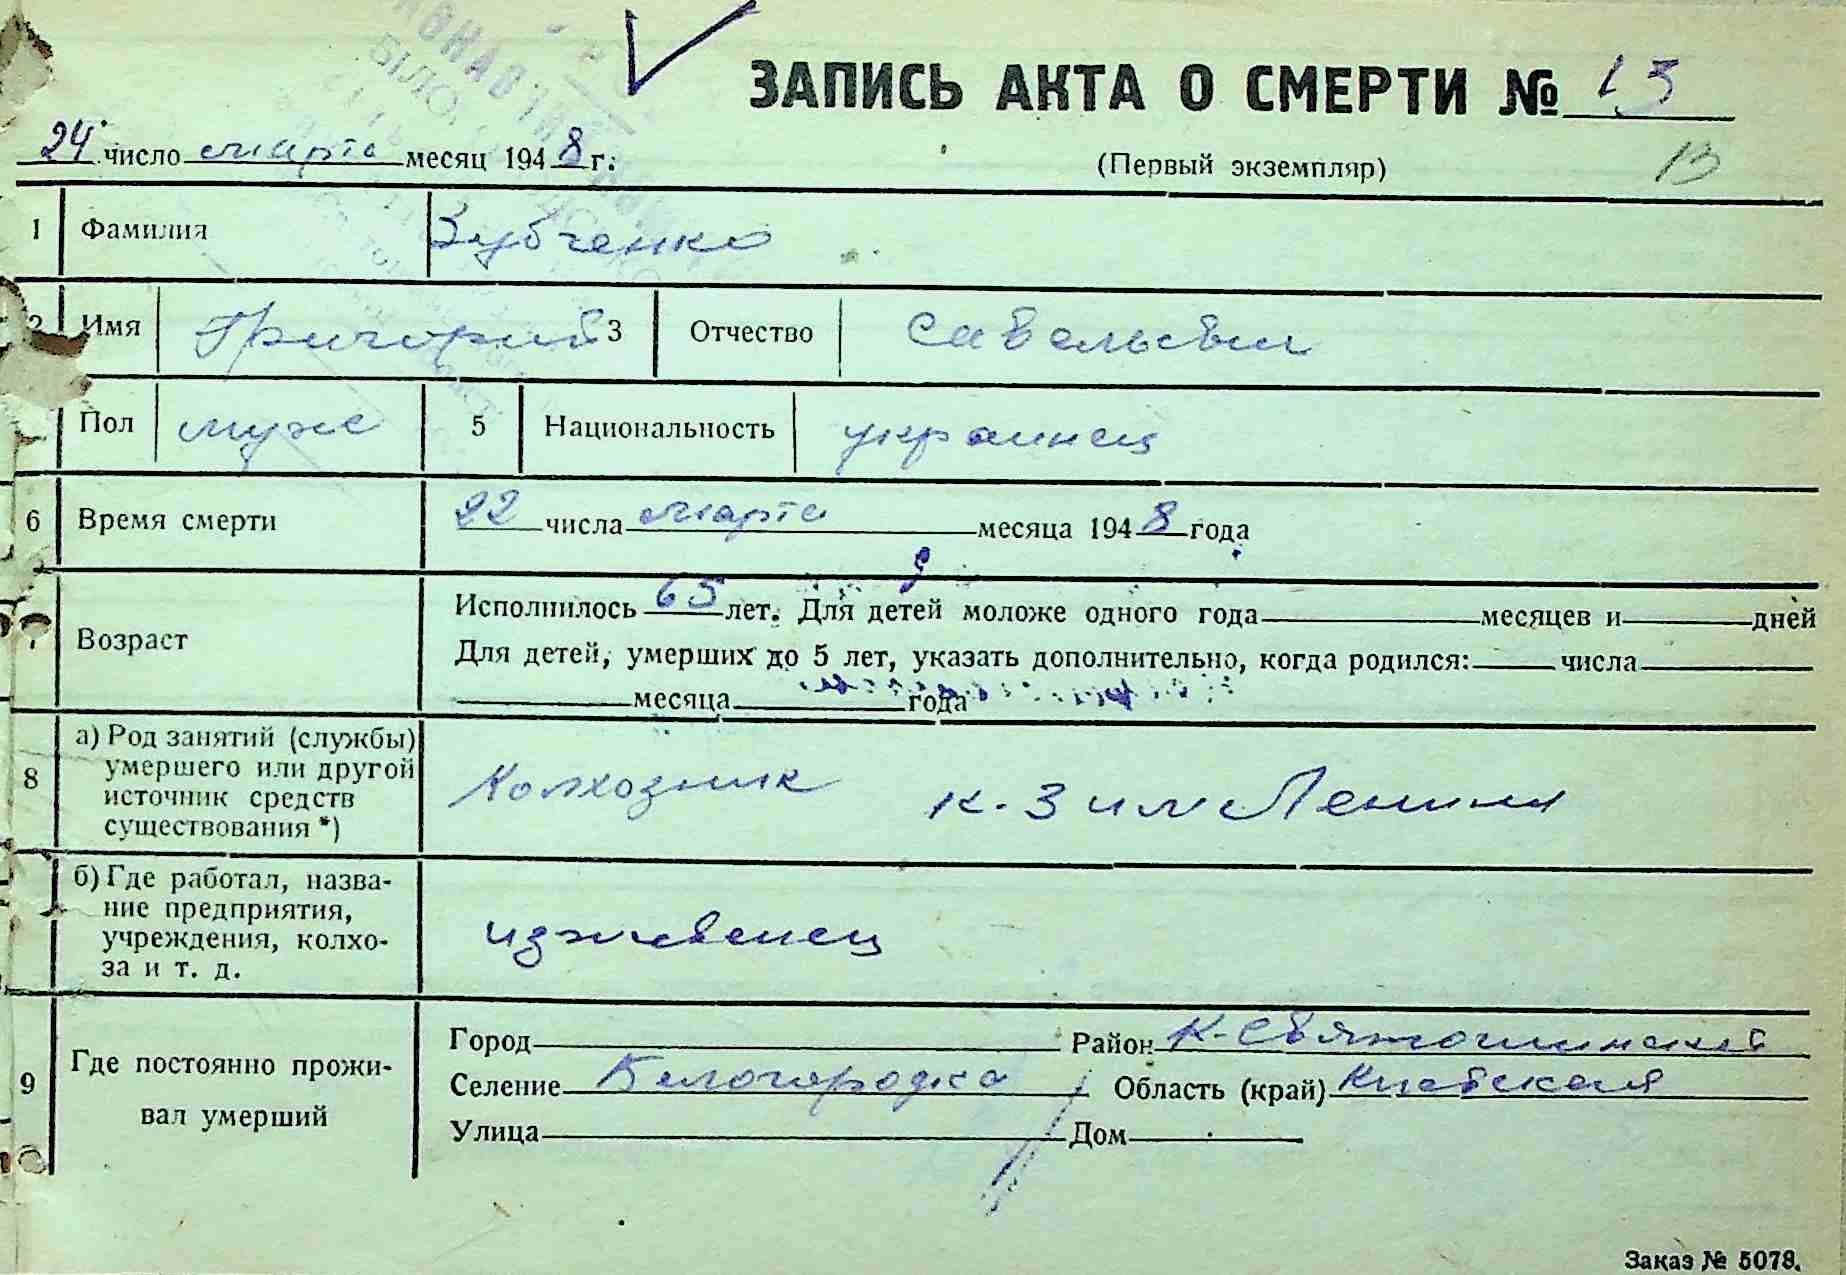 ЗАПИСЬ АКТА О СМЕРТИ № 13
24 число марта месяц 1948 г.
(Первый экземпляр)
13
1 Фамилия Зубченко
2 Имя Григорий 3 Отчество Савельевич
Пол муж 5 Национальность украинец
6 Время смерти 22 числа марта месяца 1948 года
Исполнилось 65 лет. Для детей моложе одного года месяцев и дней
7 Возраст
Для детей, умерших до 5 лет, указать дополнительно, когда родился: числа
месяца года
8 а) Род занятий (службы)
умершего или другой
источник средств
существования *)
Колхозник к-з им Ленина
б) Где работал, назва-
ние предприятия,
учреждения, колхо-
за и т. д.
иждивенец
9 Где постоянно прожи-
вал умерший
Город Район К-Святошинский
Селение Белогородка Область (край) Киевская
Улица Дом
Заказ № 5078.